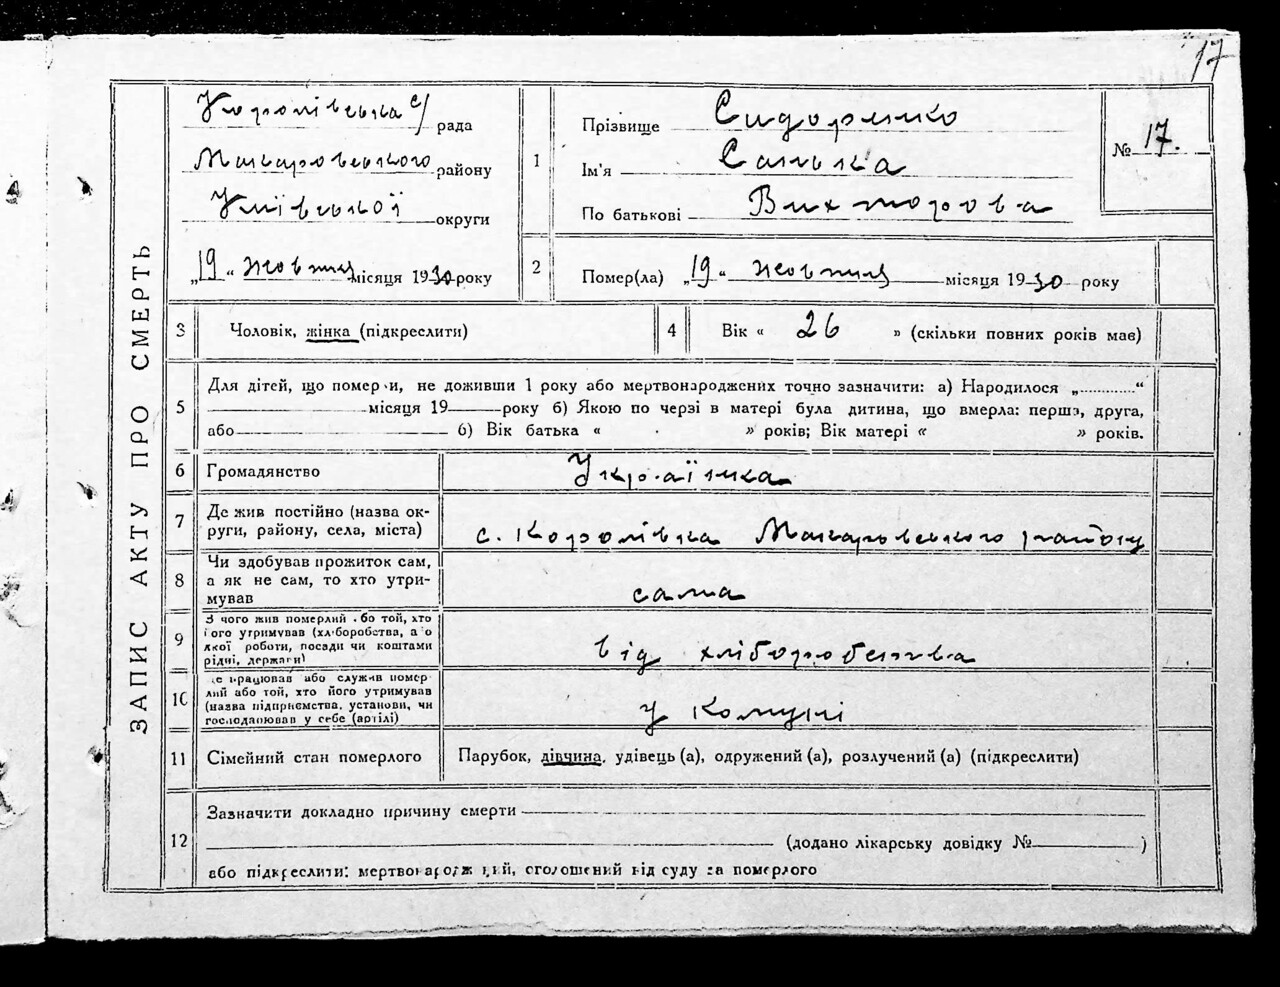 17
ЗАПИС АКТУ ПРО СМЕРТЬ
Королівська с/рада
Макаровського району
Київської округи
„19“ жовтня місяця 1930 року
1
Прізвище Сидоренко
Ім'я Санька
По батькові Вихторова
№ 17.
2
Помер(ла) „19“ жовтня місяця 1930 року
3
Чоловік, жінка (підкреслити)
4
Вік « 26 » (скільки повних років має)
5
Для дітей, що померли, не доживши 1 року або мертвонароджених точно зазначити: а) Народилося „ “
місяця 19 року б) Якою по черзі в матері була дитина, що вмерла: перша, друга,
або б) Вік батька « » років; Вік матері « » років.
6
Громадянство
Українка
7
Де жив постійно (назва ок-
руги, району, села, міста)
с. Королівка Макаровського району
8
Чи здобував прожиток сам,
а як не сам, то хто утри-
мував
сама
9
З чого жив померлий або той, хто
його утримував (хліборобства, а о
якої роботи, посади чи коштами
рідні, держави)
від хліборобства
10
де працював або служив помер
лий або той, хто його утримував
(назва підприємства, установи, чи
господарював у себе (артілі)
у Комуні
11
Сімейний стан померлого
Парубок, дівчина, удівець (а), одружений (а), розлучений (а) (підкреслити)
12
Зазначити докладно причину смерти
(додано лікарську довідку № )
або підкреслити: мертвонароджений, оголошений від суду за померлого